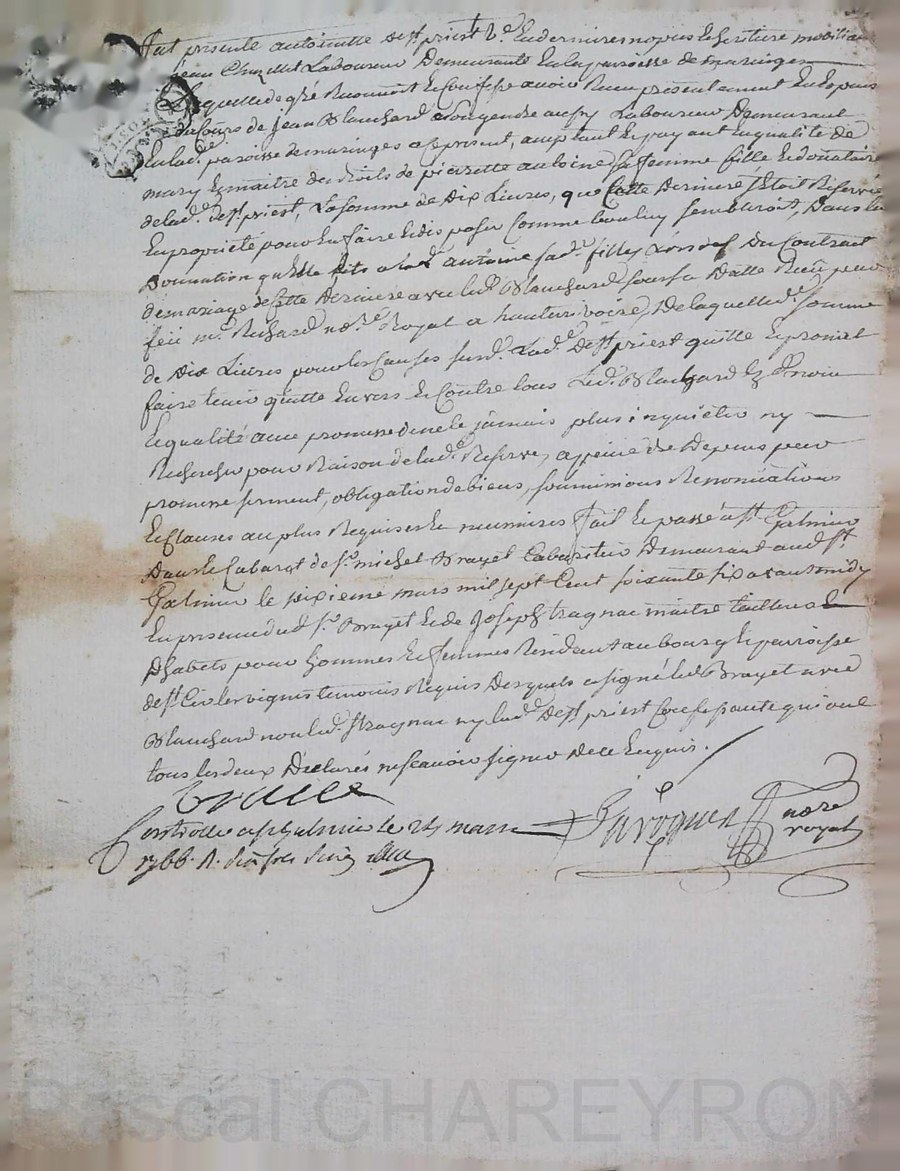 fut presente antoinette de st priest v.e en dernieres nopces
jean Chazillet Laboureur Demeurante en la paroisse de maringes
Laquelle de gré Reconnoit et Confesse avoir Receu presentement En Espece
du Cours de Jean Blanchard son gendre aussy Laboureur Demeurant
En lad.e paroisse de maringes a ce present, acceptant et payant En qualité de
mary Et maitre des droits de pierrette antoine sa femme fille Et donataire
de lad.e de st priest, La somme de Dix Livres, que Cette Derniere s'Etoit Reservée
En propriété pour En faire Et disposer Comme bon luy sembleroit, Dans la
Donnation qu'Elle fit a lad.e antoine sad.e fille Lors du Contract
de mariage de Cette Derniere avec led. Blanchard sous sa Datte Receu par
feu m.e Richard no.re Royal a hauterivoire, De laquelle d.e somme
de Dix Livres pour les Causes susd. Lad.e De st priest quitte Et promet
faire tenir quitte Envers Et Contre tous Led. Blanchard
Et qualité avec promesse de ne le jamais plus inquiéter ny
Rechercher pour Raison de lad.e Reserve, a peine de Depens par
promesse serment, obligation de biens, soumissions Renonciations
Et Clauses au plus Requises Et necessaires fait Et passé a st Galmier
Dans le Cabaret de s.r michel Brayet Cabaretier Demeurant aud. st
Galmier le sixieme mars mil sept Cent soixante six avant midy
En presence dud. s.r Brayet Et de Joseph Stragnac maitre tailleur
D'habits pour hommes Et femmes Resident au bourg Et paroisse
de st Cir les vignes temoins Requis Desquels a signé led. Brayet avec
Blanchard non led. Stragnac ny lad.e De st priest Confessante qui ont
tous les deux Déclarés ne scavoir signer De ce Enquis.
Controllé a st galmier le 24 mars
1766. R.
no.re
royal
Pascal CHAREYRON